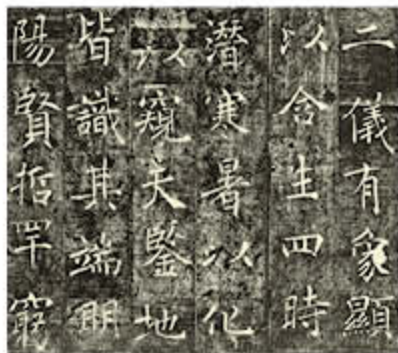 二儀有象顯
以含生四時
潛寒暑以化
以窺天鑒地
皆識其端明
陽賢哲罕窮